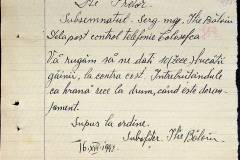 Dle Prior.
Subsemnatul - Serg. maj. Ilie Bălviu
Delapost control telefonic
Vă rugăm să ne dați 10/zece/ bucăți
găini, la contra cost. Întrebuințându-le
ca hrană rece la drum, când este
Supus la ordine.
Subofițer. Ilie
16.XII.1942.